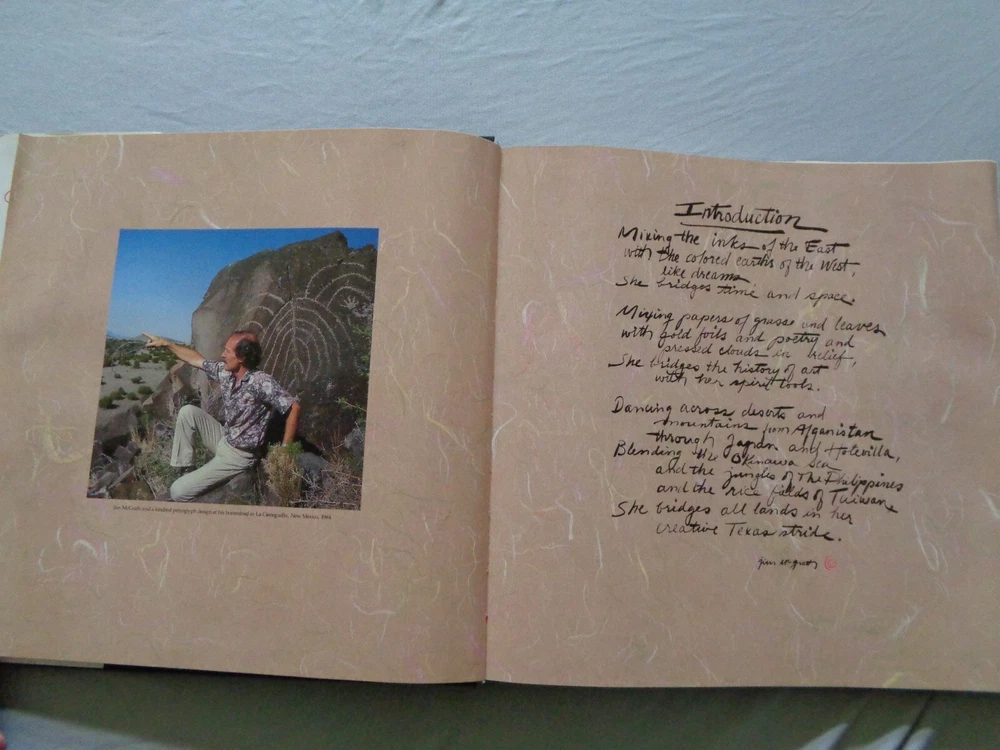 Jim McGrath and a kindred petroglyph design at his homestead in La Cieneguilla, New Mexico, 1984.
Introduction
Mixing the inks of the East
with the colored earths of the West,
like dreams
She bridges time and space.
Mixing papers of grasse and leaves
with gold foils and poetry and
pressed clouds in relief,
She bridges the history of art
with her spirit tools.
Dancing across deserts and
mountains from Afganistan
through Japan and Hotevilla,
Blending the Okinawa Sea
and the jungles of the Philippines
and the rice fields of Taiwan
She bridges all lands in her
creative Texas stride.
jim mcgrath